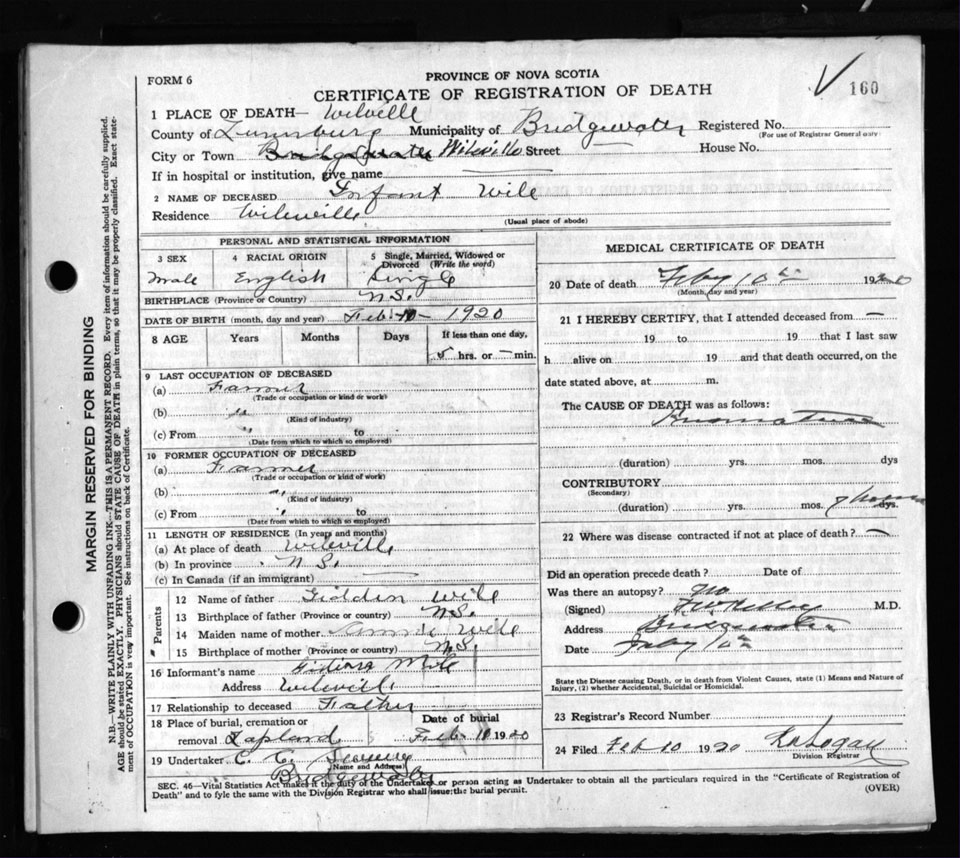 PROVINCE OF NOVA SCOTIA
FORM 6
CERTIFICATE OF REGISTRATION OF DEATH
160
1 PLACE OF DEATH— Wileville
County of Lunenburg Municipality of Bridgewater Registered No.
(For use of Registrar General only)
City or Town Bridgewater Wileville Street House No.
If in hospital or institution, give name
2 NAME OF DECEASED Infant Wile
Residence Wileville
(Usual place of abode)
PERSONAL AND STATISTICAL INFORMATION
3 SEX 4 RACIAL ORIGIN 5 Single, Married, Widowed or Divorced (Write the word)
Male English Single
BIRTHPLACE (Province or Country) N.S.
DATE OF BIRTH (month, day and year) Feb. 10 – 1920
8 AGE Years Months Days If less than one day,
5 hrs. or — min.
9 LAST OCCUPATION OF DECEASED
(a) Farmer
(Trade or occupation or kind or work)
(b) "
(Kind of industry)
(c) From " to
(Date from which to which so employed)
10 FORMER OCCUPATION OF DECEASED
(a) Farmer
(Trade or occupation or kind of work)
(b) "
(Kind of industry)
(c) From " to
(Date from which to which so employed)
11 LENGTH OF RESIDENCE (In years and months)
(a) At place of death Wileville
(b) In province N.S.
(c) In Canada (if an immigrant)
Parents
12 Name of father Wile
13 Birthplace of father (Province or country) N.S.
14 Maiden name of mother Wile
15 Birthplace of mother (Province or country) N.S.
16 Informant's name
Address Wileville
17 Relationship to deceased Father
18 Place of burial, cremation or Date of burial
removal Lapland Feb 10 1920
19 Undertaker C. C.
(Name and Address)
Bridgewater
MEDICAL CERTIFICATE OF DEATH
20 Date of death Feby 10th 1920
(Month, day and year)
21 I HEREBY CERTIFY, that I attended deceased from —
19 to 19 that I last saw
h alive on 19 and that death occurred, on the
date stated above, at m.
The CAUSE OF DEATH was as follows:
Premature
(duration) yrs. mos. dys
CONTRIBUTORY
(Secondary)
(duration) yrs. mos. dys.
22 Where was disease contracted if not at place of death? —
Did an operation precede death? Date of
Was there an autopsy? No
(Signed) M.D.
Address Bridgewater
Date Feby 10th
State the Disease causing Death, or in death from Violent Causes, state (1) Means and Nature of
Injury, (2) whether Accidental, Suicidal or Homicidal.
23 Registrar's Record Number
24 Filed Feb 10 1920
Division Registrar
SEC. 46—Vital Statistics Act makes it the duty of the Undertaker or person acting as Undertaker to obtain all the particulars required in the "Certificate of Registration of
Death" and to fyle the same with the Division Registrar who shall issue the burial permit.
(OVER)
MARGIN RESERVED FOR BINDING
N.B.—WRITE PLAINLY WITH UNFADING INK—THIS IS A PERMANENT RECORD. Every item of information should be carefully supplied.
AGE should be stated EXACTLY. PHYSICIANS should STATE CAUSE OF DEATH in plain terms, so that it may be properly classified. Exact state-
ment of OCCUPATION is very important. See instructions on back of Certificate.